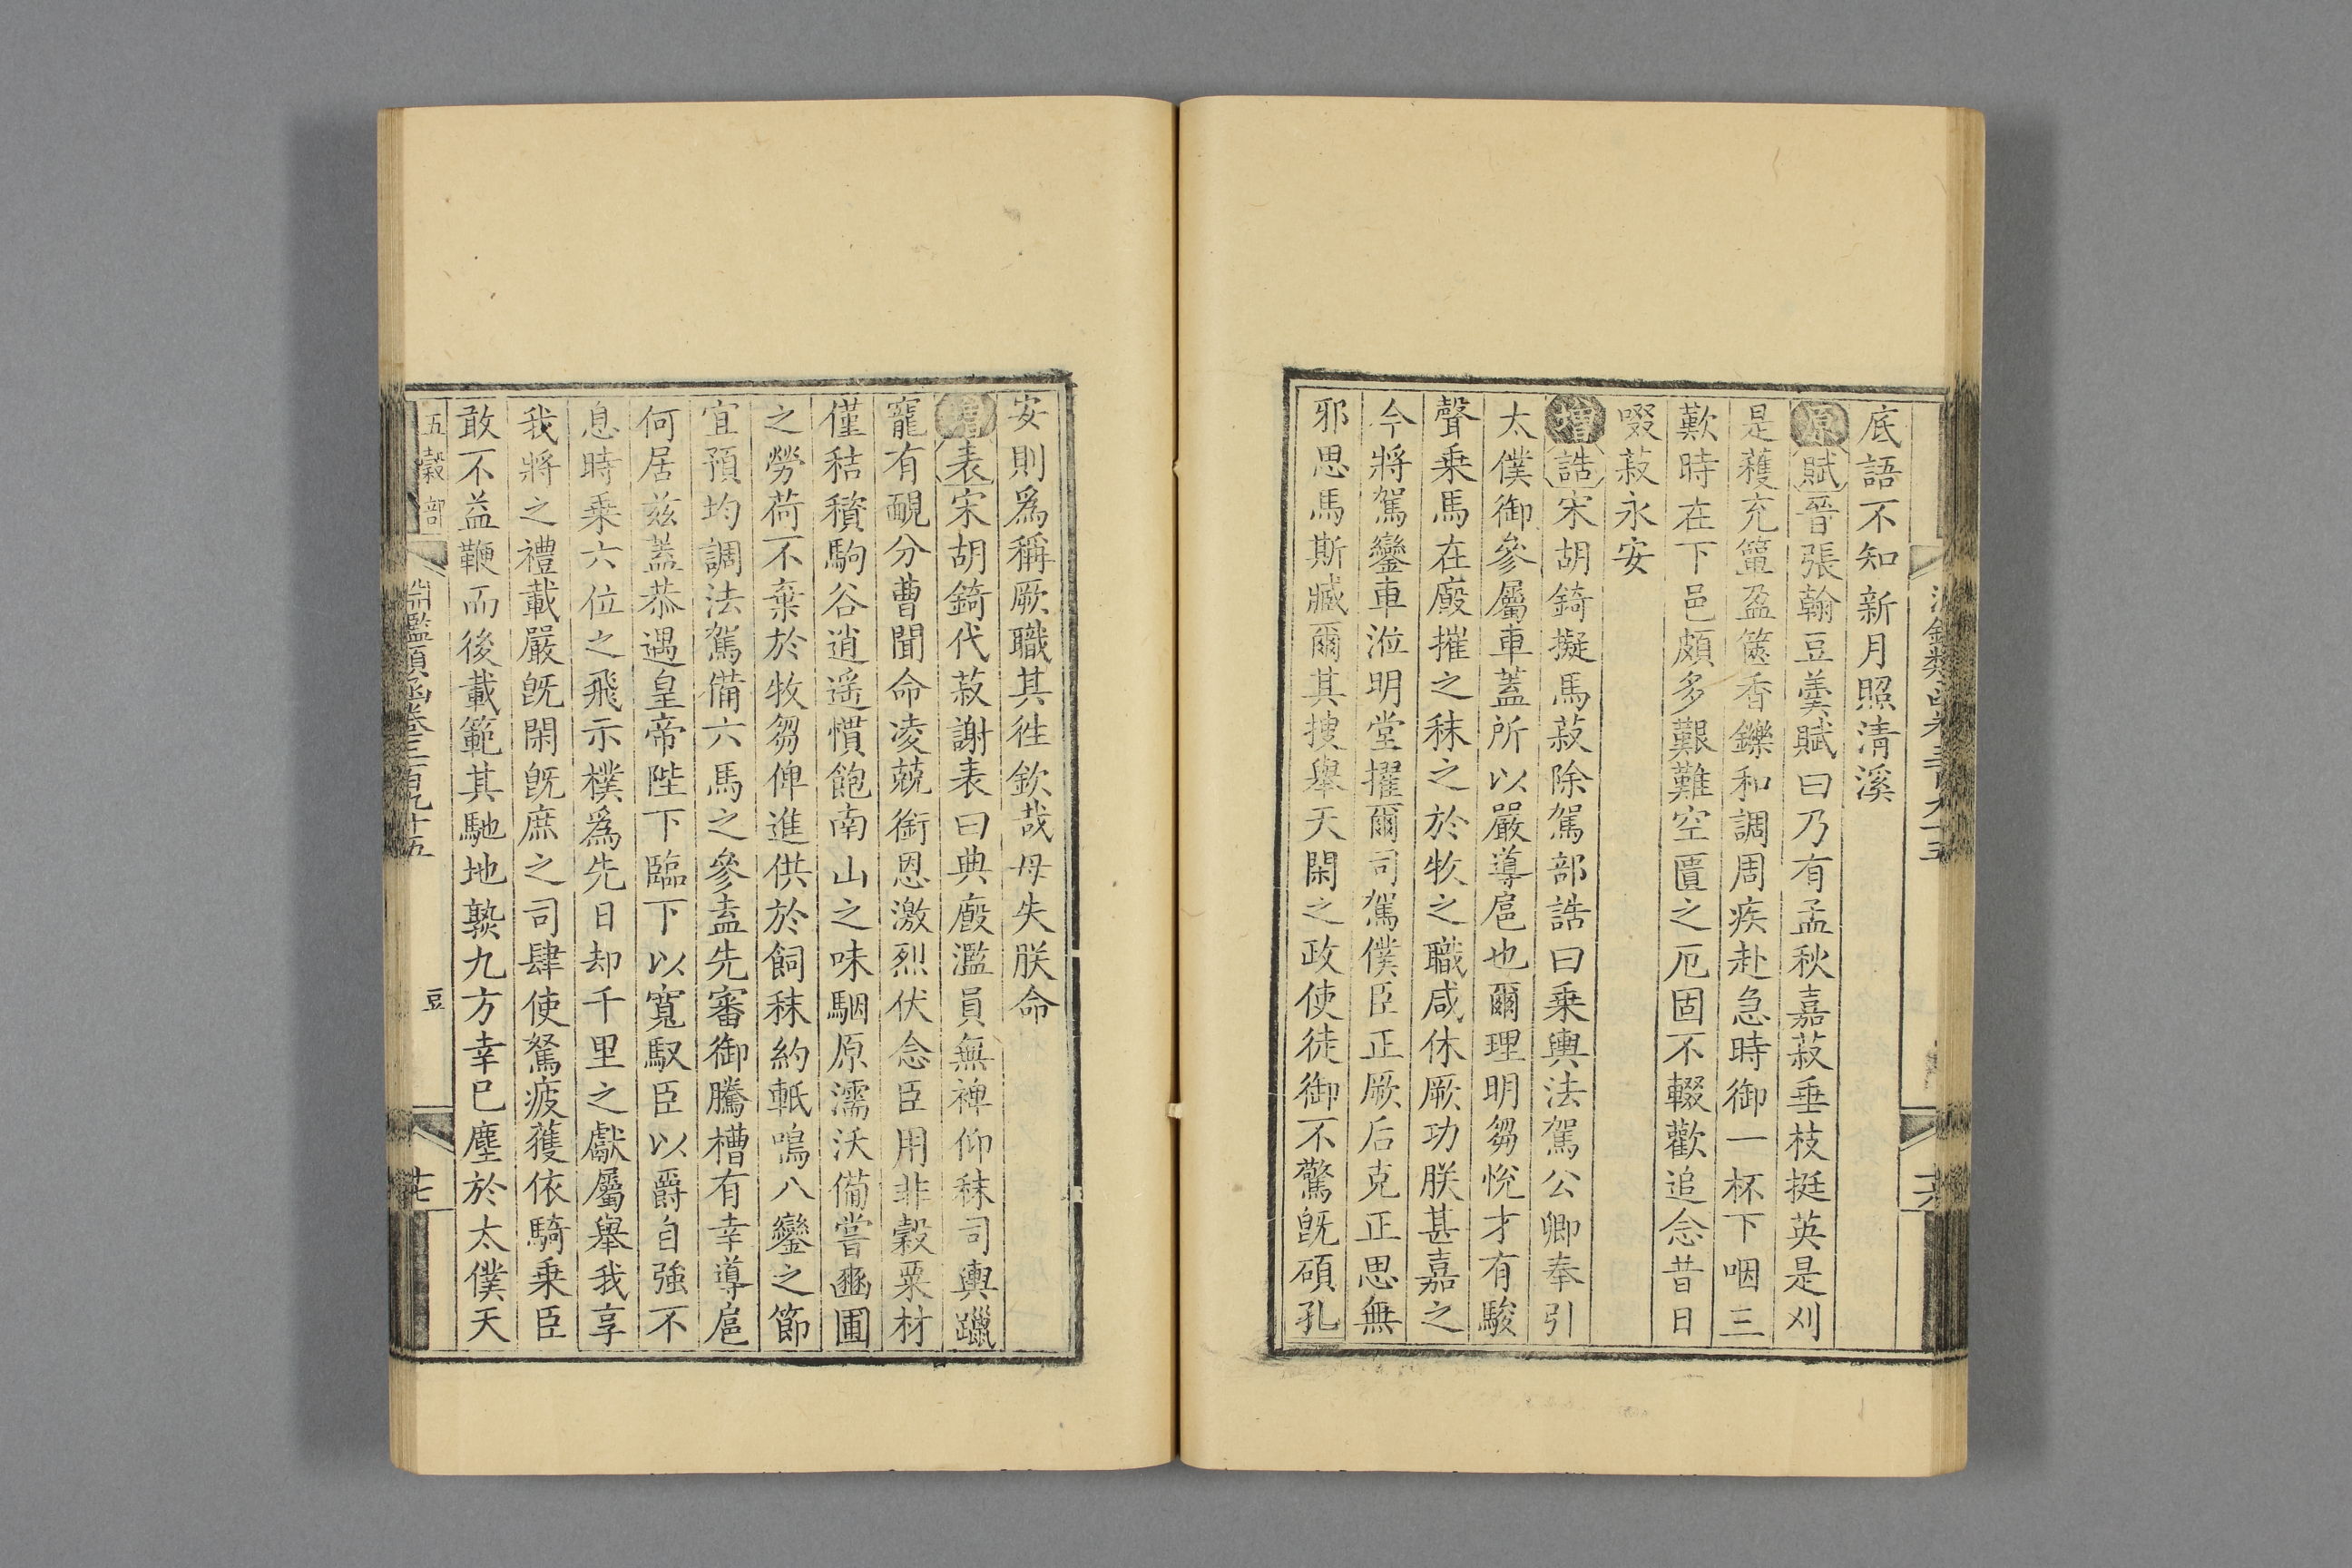 底語不知新月照清溪
原賦晉張翰豆羹賦曰乃有孟秋嘉菽垂枝挺英是刈
是穫充簞盈篋香鑠和調周疾赴急時御一杯下咽三
歎時在下邑頗多艱難空匱之厄固不輟歡追念昔日
啜菽永安
增誥宋胡錡擬馬菽除駕部誥曰乗輿法駕公卿奉引
太僕御參屬車蓋所以嚴導扈也爾理明芻悅才有駿
聲乗馬在廄摧之秣之於牧之職咸休厥功朕甚嘉之
今將駕鑾車涖明堂擢爾司駕僕臣正厥后克正思無
邪思馬斯臧爾其搜舉天閑之政使徒御不驚旣碩孔
安則爲稱厥職其徃欽哉毋失朕命
增表宋胡錡代菽謝表曰典廄濫員無裨仰秣司輿躐
寵有靦分曹聞命凌兢銜恩激烈伏念臣用非穀粟材
僅秸穳駒谷逍遥慣飽南山之味駰原濡沃備嘗豳圃
之勞荷不棄於牧芻俾進供於飼秣約軝鳴八鑾之節
宜預均調法駕備六馬之參盍先審御騰槽有幸導扈
何居兹蓋恭遇皇帝陛下臨下以寬馭臣以爵自強不
息時乗六位之飛示樸爲先日却千里之獻屬舉我享
我將之禮載嚴旣閑旣庶之司肆使駑疲獲依騎乗臣
敢不益鞭而後載範其馳地孰九方幸巳塵於太僕天
五穀部
淵鑑類函卷三百九十五
豆